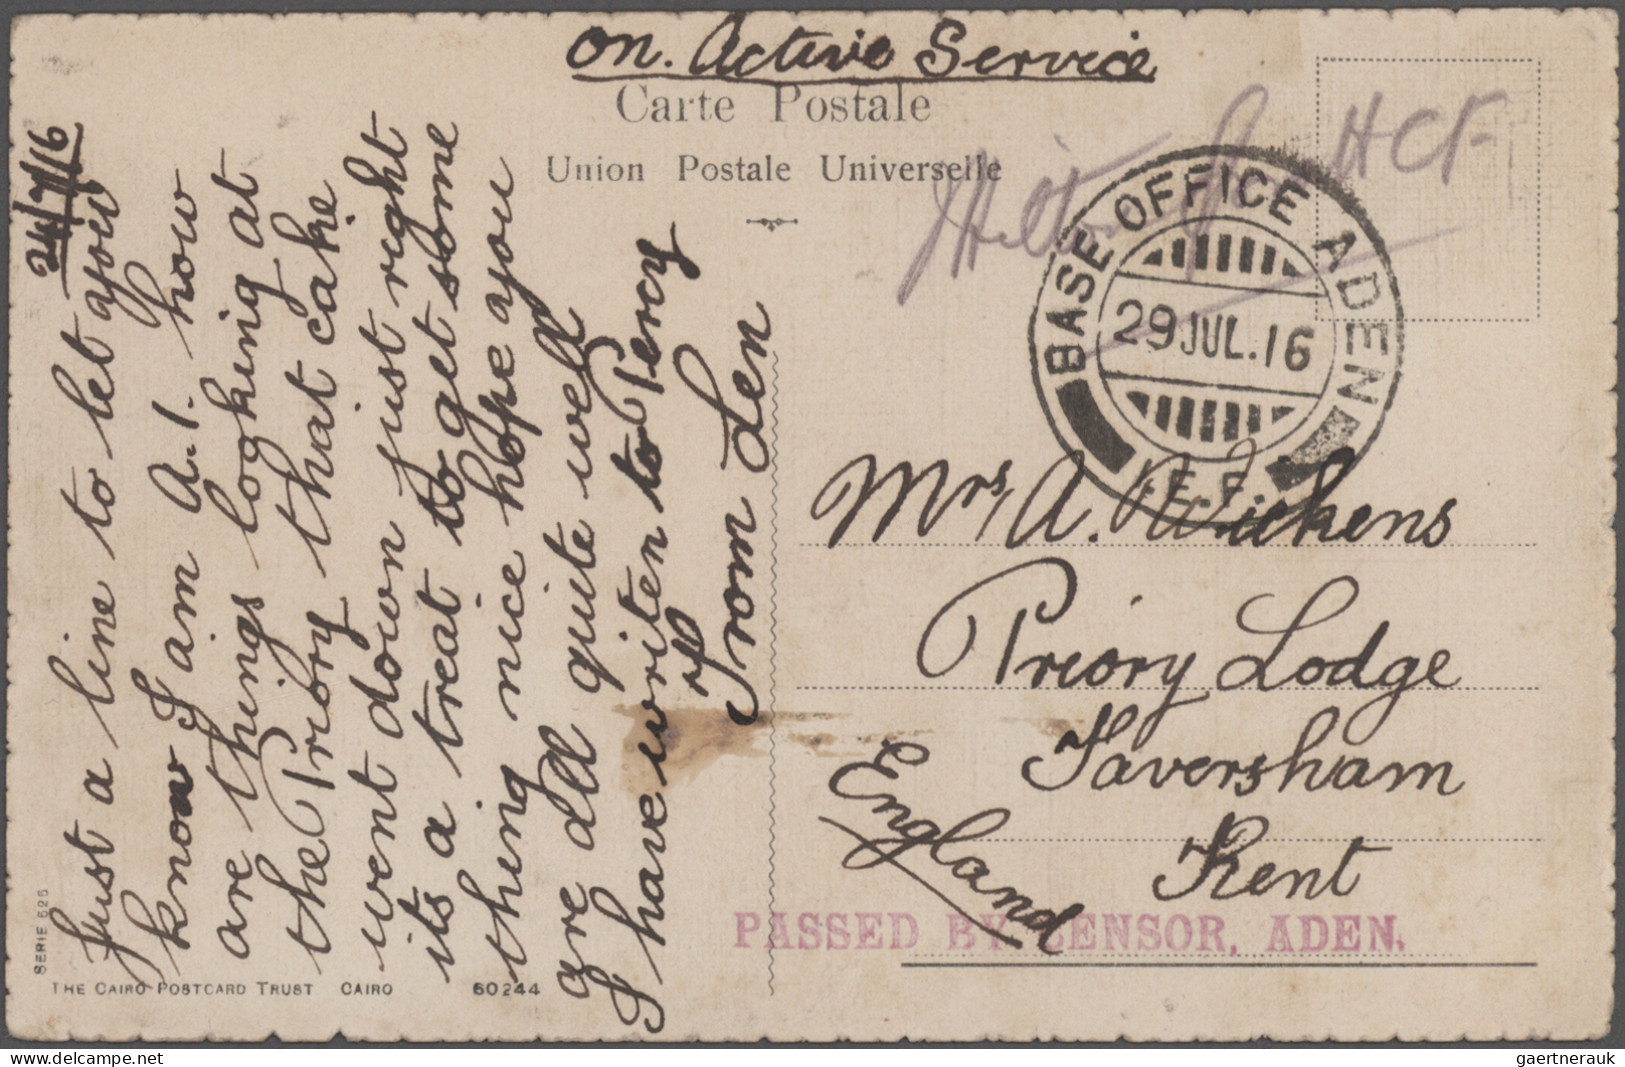 on. Active Service
Carte Postale
Union Postale Universelle
HCF
BASE OFFICE ADEN
29 JUL.16
I.E.F.
24/7/16
Just a line to let you
know I am A.1. how
are things looking at
the Priory that cake
went down just right
its a treat to get some
thing nice hope you
are all quite well
I have writen to Percy
From Len
Mrs, A. Wickens
Priory Lodge
Faversham
Kent
England
PASSED BY CENSOR, ADEN.
SERIE 526
THE CAIRO POSTCARD TRUST CAIRO 60244
delcampe.net
gaertnerauk